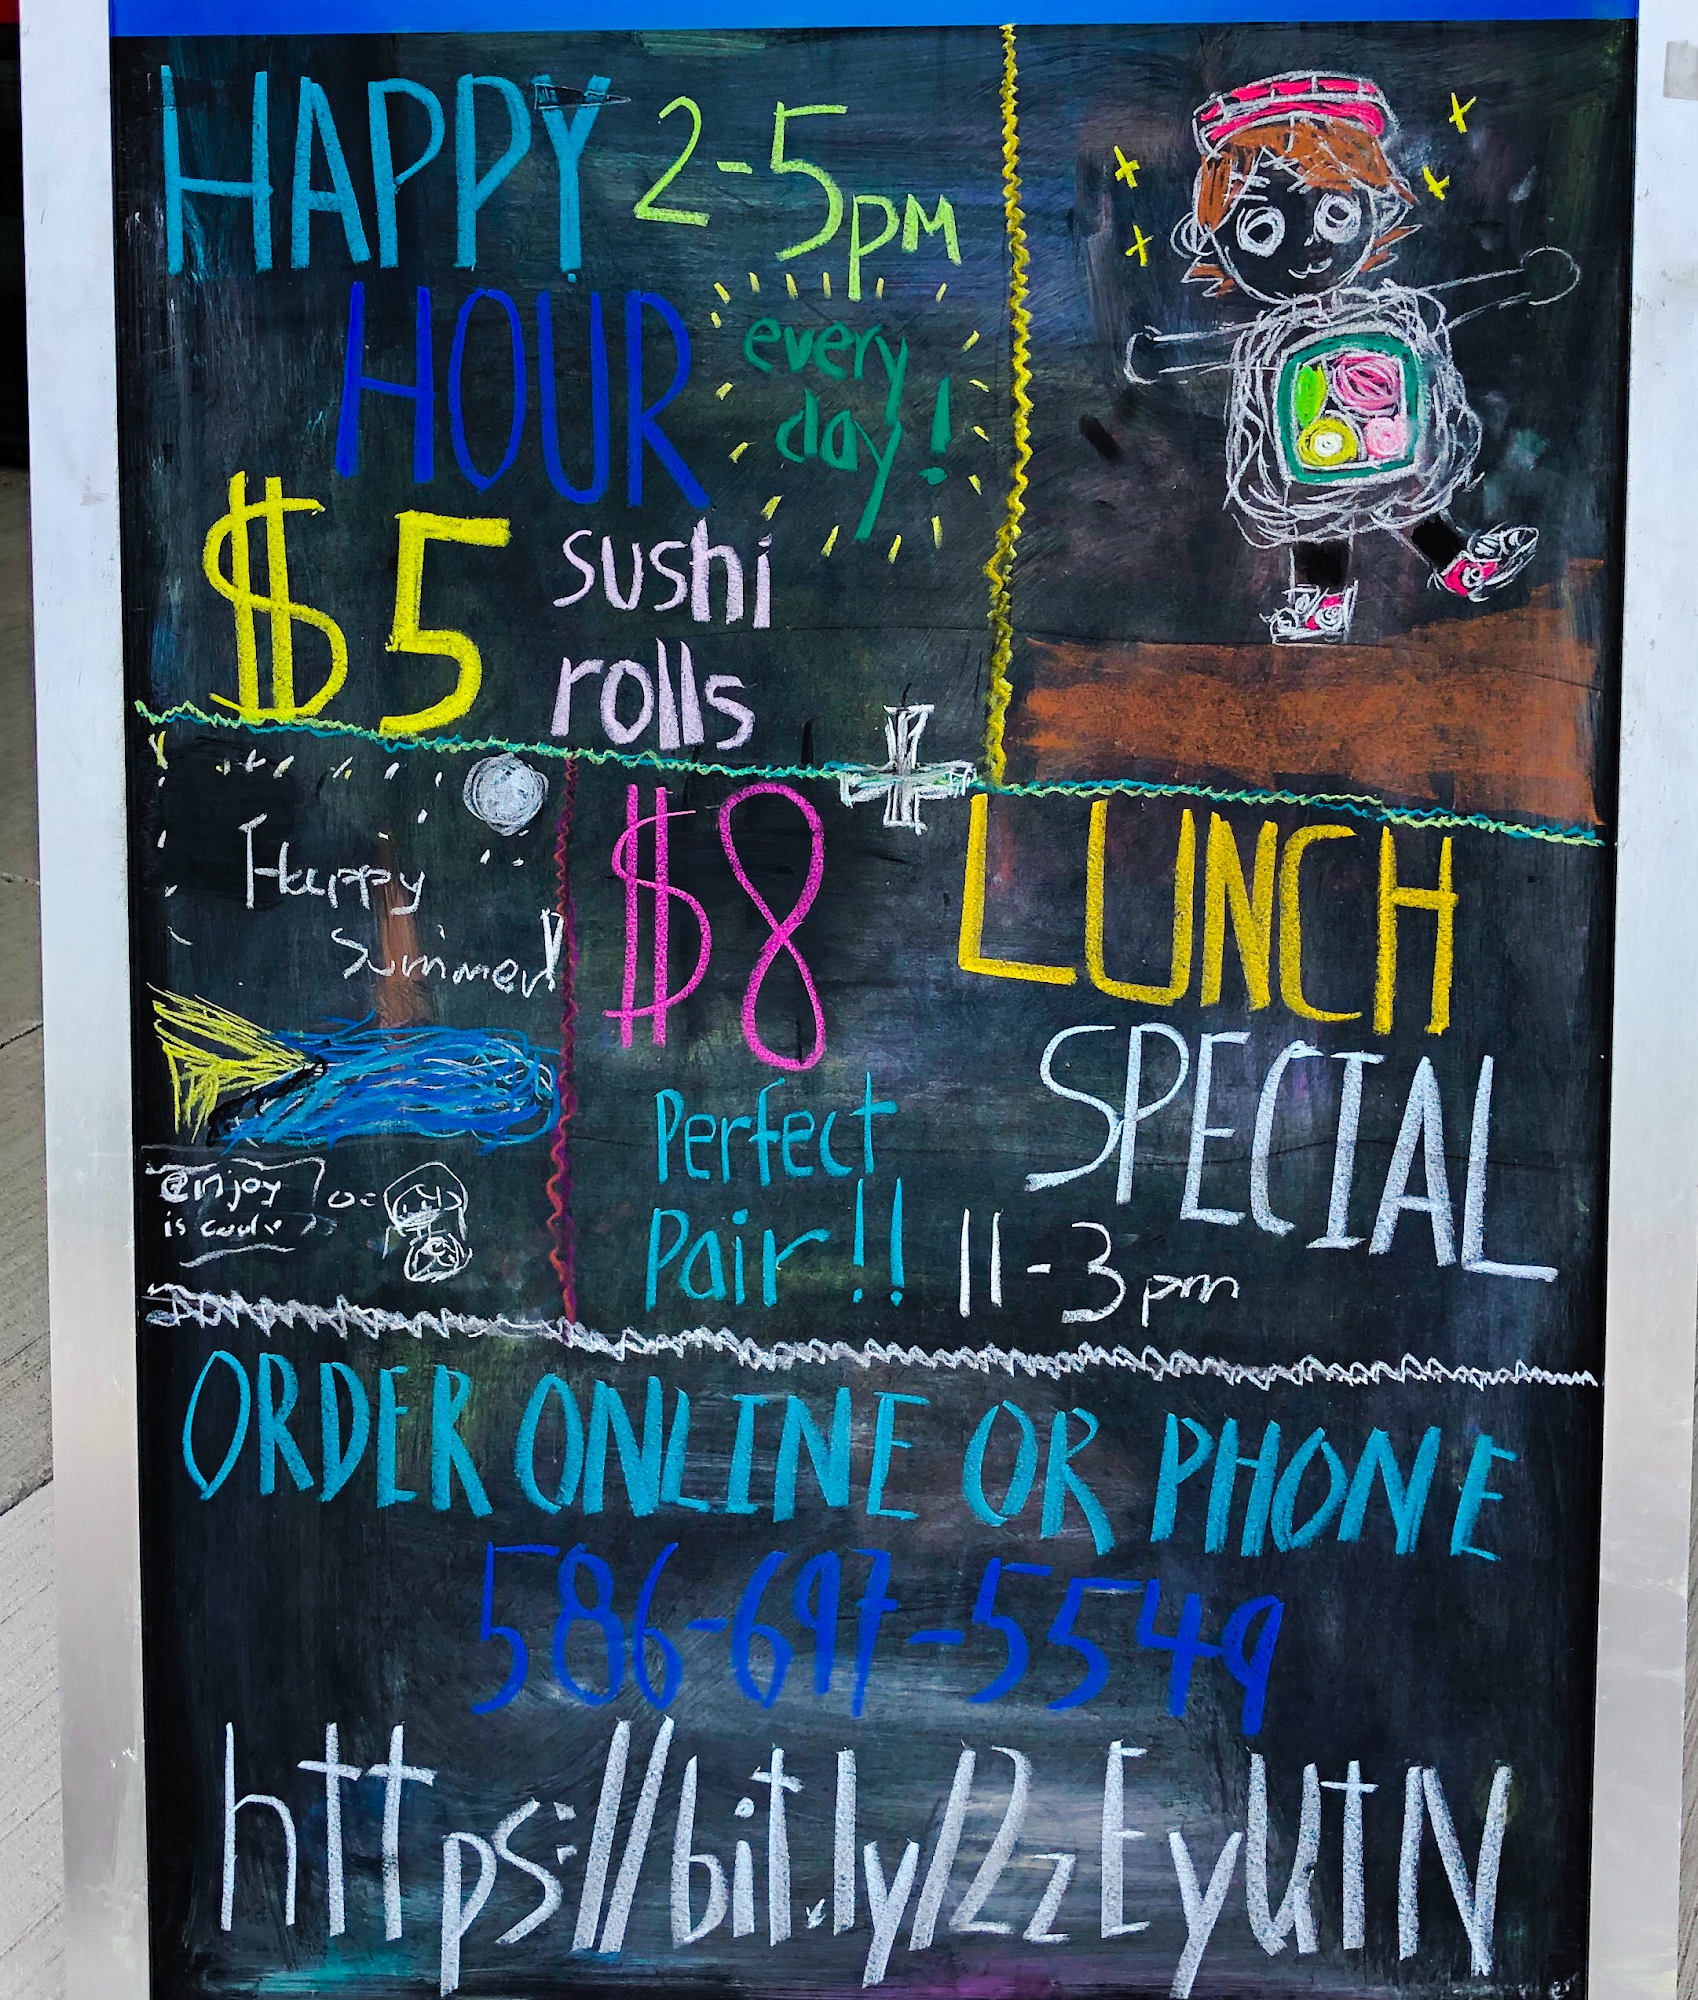 HAPPY 2-5pm
HOUR every
day!
$5 sushi
rolls
Happy
Summer!
$8 LUNCH
SPECIAL
Perfect
Pair!! 11-3pm
@njoy
is
ORDER ONLINE OR PHONE
586-697-5549
https://bit.ly/2zEyUtN